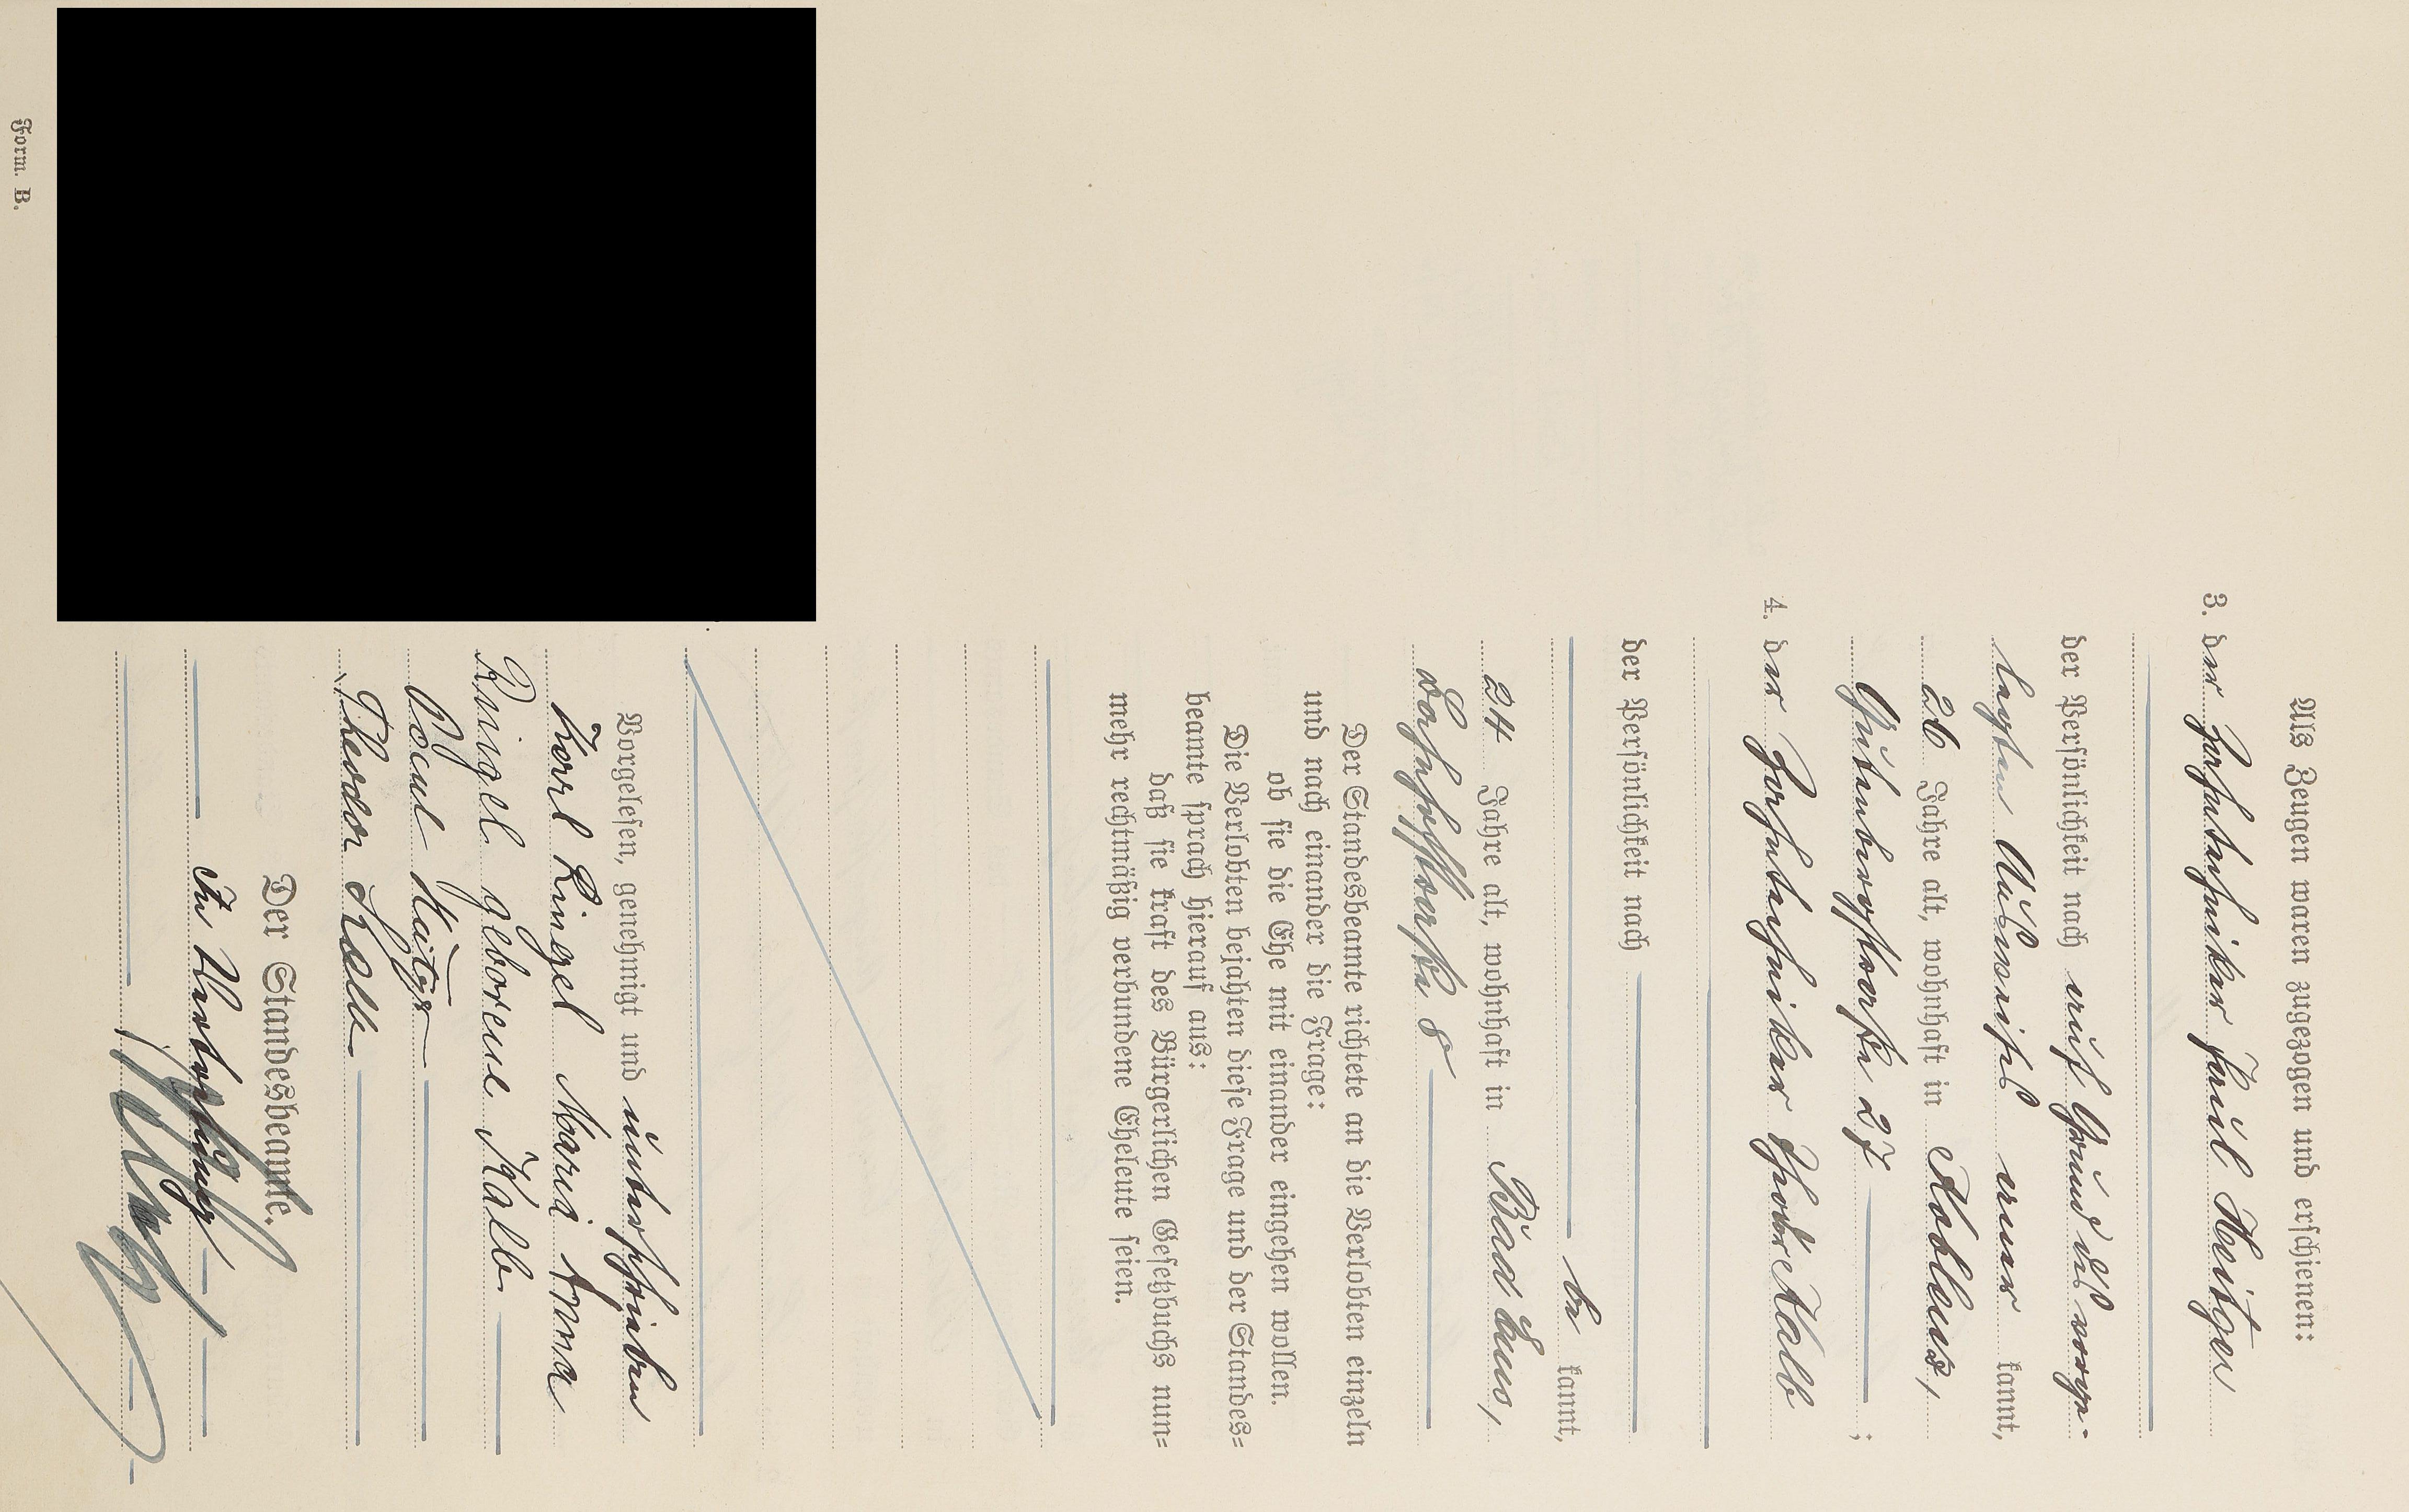 Als Zeugen waren zugezogen und erschienen:
3. der Zahntechniker Paul Kaitger
der Persönlichkeit nach auf Grund des vorge-
legten Ausweises aner kannt,
26 Jahre alt, wohnhaft in Koblenz,
Gutenbergstraße 27 ;
4. der Zahntechniker Theodor Kalb
der Persönlichkeit nach
be kannt,
24 Jahre alt, wohnhaft in Bad Ems,
Bahnhofstraße 8
Der Standesbeamte richtete an die Verlobten einzeln
und nach einander die Frage:
ob sie die Ehe mit einander eingehen wollen.
Die Verlobten bejahten diese Frage und der Standes=
beamte sprach hierauf aus:
daß sie kraft des Bürgerlichen Gesetzbuchs nun=
mehr rechtmäßig verbundene Eheleute seien.
Vorgelesen, genehmigt und unterschrieben
Karl Ringel Maria Anna
Ringel geborene Kalb
Paul
Theodor Kalb
Der Standesbeamte.
In Vertretung
Form. B.